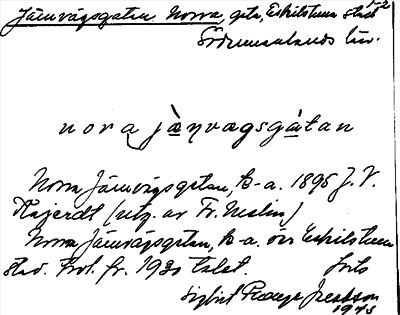 1-2
Järnvägsgatan Norra, gata, Eskilstuna stad
Södermanlands län.
nora jä̀ṇvægsgàtan
Norra Järnvägsgatan, k-a. 1895 J. V.
(utg. av Fr. Meslin)
Norra Järnvägsgatan, k-a. över Eskilstuna
stad. Prot. fr. 1920 talet. forts
Sigbrit Plænge Jacobson
1975